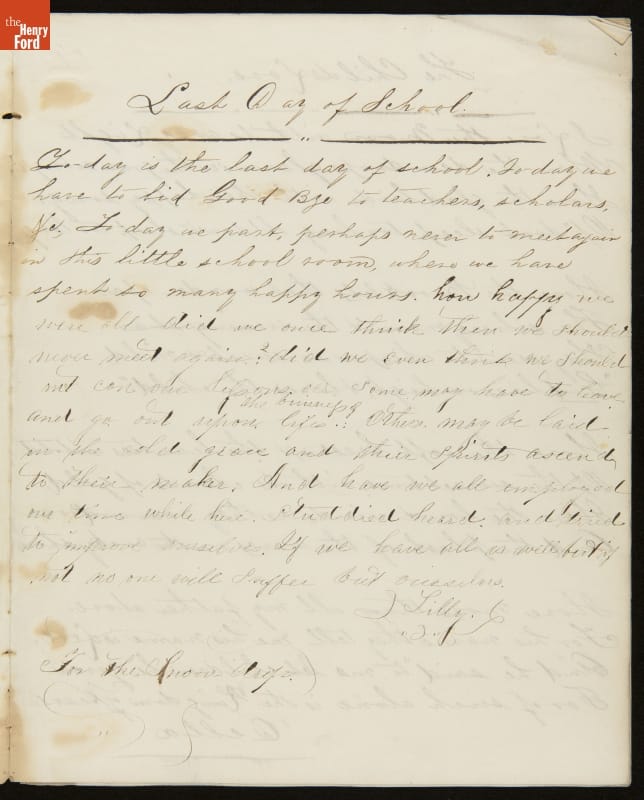 the
Henry
Ford
Last Day of School.
To-day is the last day of school. To day we
have to bid Good Bye to teachers, scholars,
&c. To day we part, perhaps never to meet again
in this little school room, where we have
spent so many happy hours. how happy we
were all did we once think then we should
never meet again? did we even think we should
not con our lessons as some may have to leave
and go out upon life's
the business of
Others may be laid
in the cold grave and their spirits ascend
to their maker. And have we all employed
our time while here. Studdied heard. and tried
to improve ourselves. If we have all is well but if
not no one will suffer but ourselves.
Lilly.
For the Snow drop.